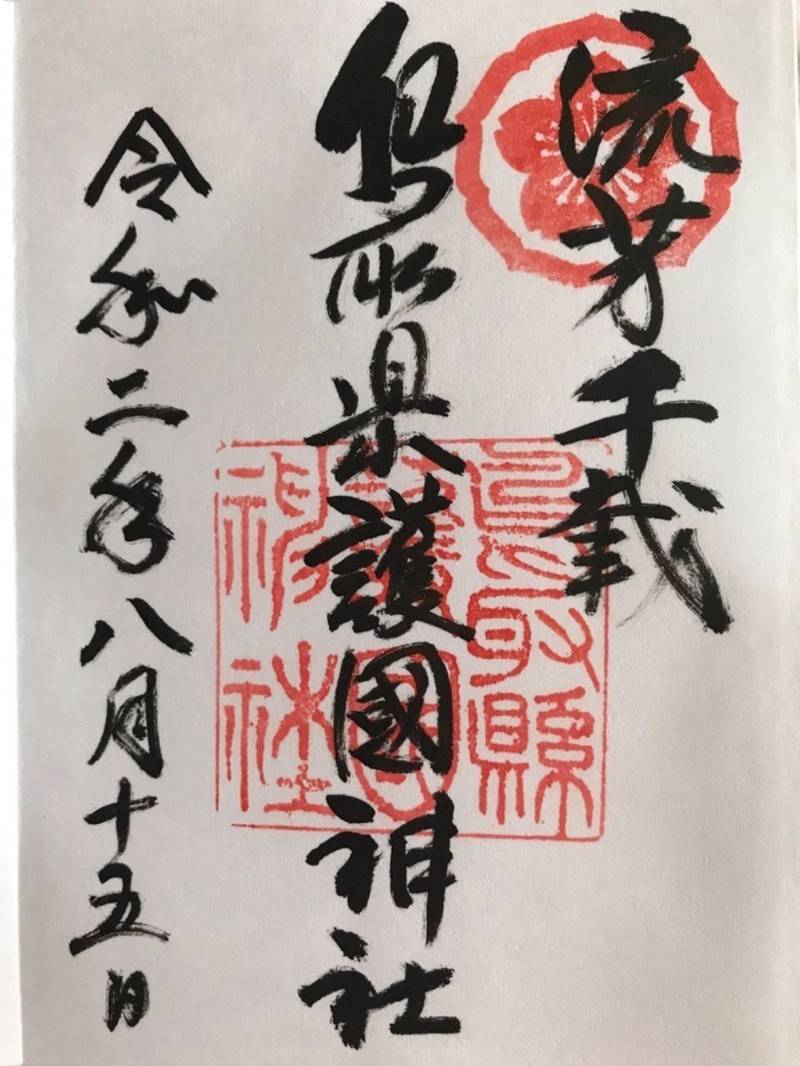 流芳千載
鳥取県護國神社
令和二年八月十五日
鳥取縣護國神社